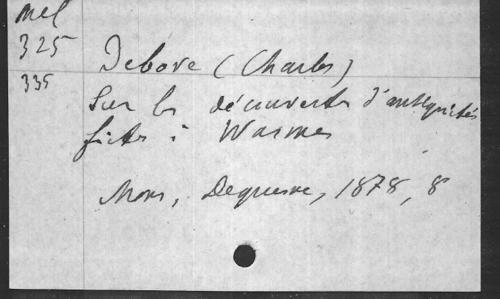 Mel
325
335
Debove (Charles)
Sur les découvertes d'antiquités
faites à Wasmes
Mons, Dequesne, 1878, 8